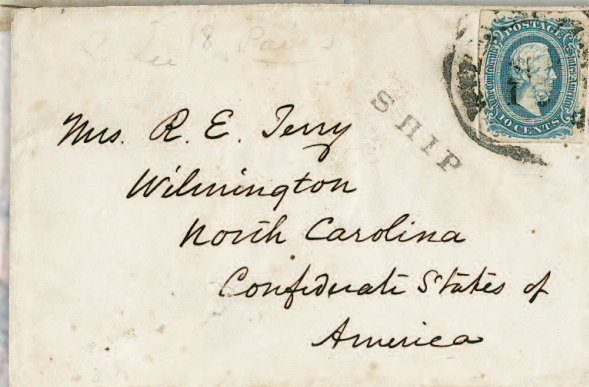 POSTAGE
10 CENTS
SHIP
Mrs. R. E. Terry
Wilmington
North Carolina
Confederate States of
America